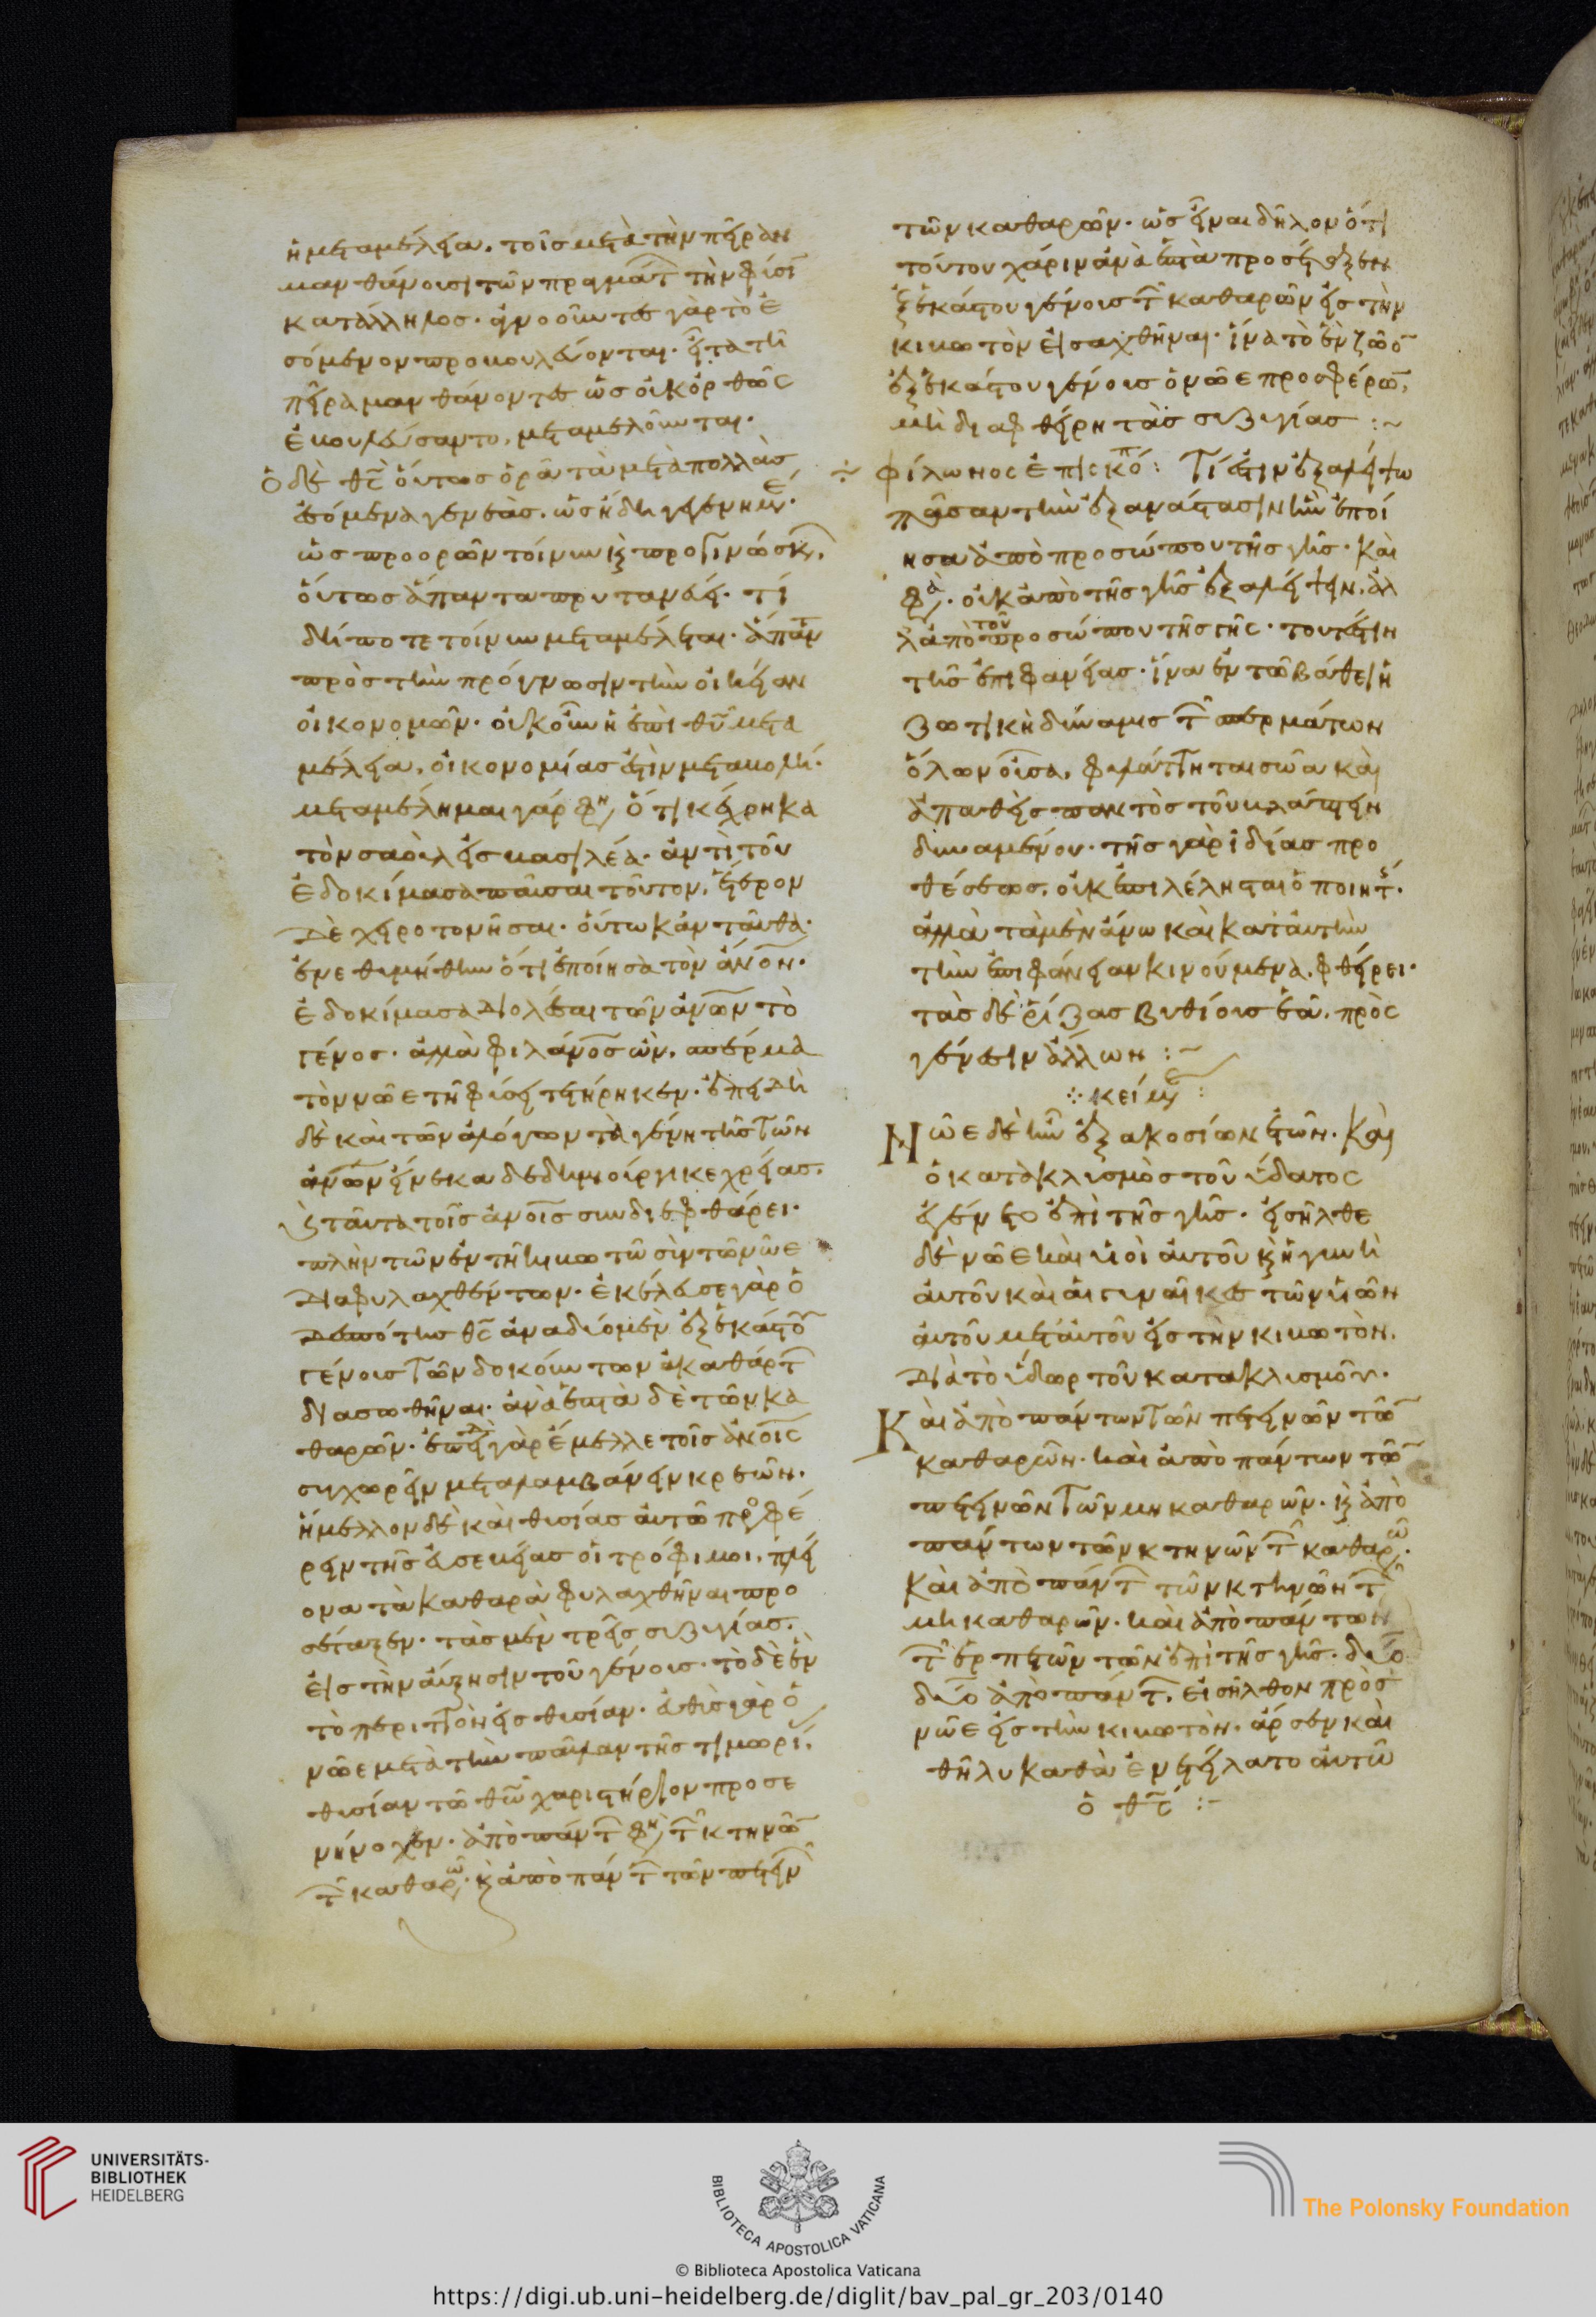 ἡ μεταμέλεια. τοῖς μετὰ τὴν πεῖραν
μανθάνουσι τῶν πραγμάτ τὴν φύσι
κατάλληλος. ἀγνοοῦντες γὰρ τὸ ἐ
σόμενον προβουλεύονται. εἶτα τῆ
πείρα μανθάνοντες ὡς οὐκ ὀρθῶς
ἐβουλεύσαντο, μεταμέλονται.
ὁ δὲ θς οὕτως ὁρᾶ τὰ μετὰ πολλὰς
ἐσόμενα γενεὰς. ὡς ἤδη γεγενημέ.
ὡς προορῶν τοίνυν κ προγινώσκ,
οὕτως ἅπαντα πρυτανεύει. τί
δήποτε τοίνυν μεταμέλεται. ἅπαν
πρὸς τὴν πρόγνωσιν τὴν οἰκείαν
οἰκονομῶν. οὐκοῦν ἡ ἐπὶ θυ μετα
μέλεια, οἰκονομίας ἐστὶν μεταβολή.
μεταμέλημαι γάρ φη, ὅτι κέχρηκα
τὸν σαοὺλ εἰς βασιλέα. ἀντὶ τοῦ
ἐδοκίμασα παῦσαι τοῦτον. ἕτερον
δὲ χειροτονῆσαι. οὕτω κἀνταῦθα.
ἐνεθυμήθην ὅτι ἐποίησα τὸν ἄνον.
ἐδοκίμασα διολέσαι τῶν ἀνων τὸ
γένος. ἀλλὰ φιλάνος ὢν. σπέρμα
τὸν νῶε τῆ φύσει τετήρηκεν. ἐπειδὴ
δὲ καὶ τῶν ἀλόγων τὰ γένη τῆς τῶν
ἀνων εἵνεκα δεδημιούργικε χρείας.
κ ταῦτα τοῖς ἀνοις συνδιεφθάρει.
πλὴν τῶν ἐν τῆ κιβωτῶ σὺν τῶ νῶε
διαφυλαχθέντων. ἐκέλευσε γὰρ ὁ
δεσπότης θς ἀνὰ δύο μὲν ἐξ ἑκάστου
γένους τῶν δοκούντων ἀκαθάρτ
διασωθῆναι. ἀνὰ ἑπτὰ δὲ τῶν κα
θαρῶν. ἐπειδὴ γὰρ ἔμελλε τοῖς ἀνοις
συγχωρεῖν μεταλαμβάνειν κρεῶν.
ἤμελλον δὲ καὶ θυσίας αὐτῶ προσφέ
ρειν τῆς εὐσεβείας οἱ τρόφιμοι, πλεί
ονα τὰ καθαρὰ φυλαχθῆναι προ
σέταξεν. τὰς μὲν τρεῖς συζυγίας.
εἰς τὴν αὔξησιν τοῦ γένους. τὸ δὲ ἓν
τὸ περιττὸν εἰς θυσίαν. εὐθὺς γὰρ ὁ
νῶε μετὰ τὴν παῦλαν τῆς τιμωρί.
θυσίαν τῶ θω χαριστήριον προσε
νήνοχεν. ἀπὸ πάντ φη, τ κτηνῶ
τ καθαρῶ. κ ἀπὸ πάντ τῶν πετειν
τῶν καθαρῶν. ὡς εἶναι δῆλον ὅτι
τούτου χάριν ἀνὰ ἑπτὰ προσέταξεν
ἐξ ἑκάστου γένους τ καθαρῶν εἰς τὴν
κιβωτὸν εἰσαχθῆναι. ἵνα τὸ ἓν ζῶο
ἐξ ἑκάστου γένους ὁ νῶε προσφέρω,
μὴ διαφθείρη τὰς συζυγίας :~
φίλωνος ἐπισκό: Τί ἐστιν ἐξαλείψω
πᾶσαν τὴν ἐξανάστασιν ἣν ἐποί
ησα ἀπὸ προσώπου τῆς γῆς. καὶ
φα, οὐκ ἀπὸ τῆς γῆς ἐξαλείψειν. ἀλ
λὰ ἀπὸ τοῦ προσώπου τῆς γῆς. τουτέστιν
τῆς ἐπιφανείας. ἵνα ἐν τῶ βάθει ἡ
ζωτικὴ δύναμις τ σπερμάτων
ὅλων οὖσα, φυλάττηται σῶα καὶ
ἀπαθὴς παντὸς τοῦ βλάπτειν
δυναμένου. τῆς γὰρ ἰδίας προ
θέσεως. οὐκ ἐπιλέλησται ὁ ποιητ.
ἀλλὰ τὰ μὲν ἄνω καὶ κατ αὐτὴν
τὴν ἐπιφάνειαν κινούμενα. φθείρει.
τὰς δὲ ῥίζας βυθίους ἐᾶ. πρὸς
γένεσιν ἄλλων :~
κείμε :
Νῶε δὲ ἦν ἑξακοσίων ἐτῶν. καὶ
ὁ κατακλυσμὸς τοῦ ὕδατος
ἐγένετο ἐπὶ τῆς γῆς. εἰσῆλθε
δὲ νῶε καὶ υἱοὶ αὐτοῦ κ ἡ γυνὴ
αὐτοῦ καὶ αἱ γυναῖκες τῶν υἱῶν
αὐτοῦ μετ αὐτοῦ εἰς τὴν κιβωτὸν.
διὰ τὸ ὕδωρ τοῦ κατακλυσμοῦ.
Καὶ ἀπὸ πάντων τῶν πετεινῶν τῶ
καθαρῶν. καὶ ἀπὸ πάντων τῶ
πετεινῶν τῶν μη καθαρῶν. κ ἀπὸ
πάντων τῶν κτηνῶν τ καθαρῶ.
καὶ ἀπὸ πάντ τῶν κτηνῶν τ
μὴ καθαρῶν. καὶ ἀπὸ πάντων
τ ἑρπετῶν τῶν ἐπὶ τῆς γῆς. δύο
δύο ἀπὸ πάντ. εἰσῆλθον πρὸς
νῶε εἰς τὴν κιβωτὸν. ἄρσεν καὶ
θῆλυ καθὰ ἐνετείλατο αὐτῶ
ὁ θς :~
UNIVERSITÄTS-
BIBLIOTHEK
HEIDELBERG
BIBLIOTECA APOSTOLICA VATICANA
The Polonsky Foundation
© Biblioteca Apostolica Vaticana
https://digi.ub.uni-heidelberg.de/diglit/bav_pal_gr_203/0140